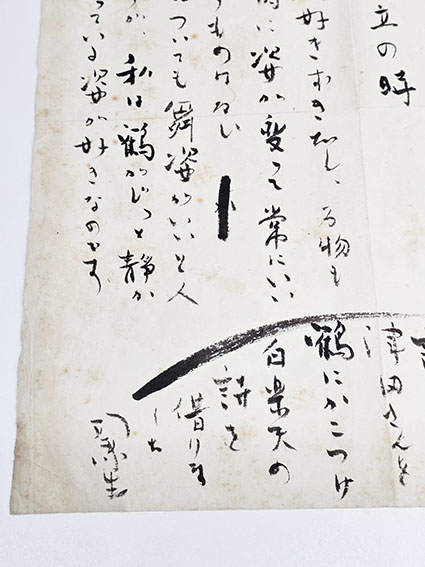 立の時
好きずきだし、万物も
時に姿が変って常にいい
ものはない
についても舞姿がいいと人
が、私は鶴がじっと静か
っている姿が好きなのです
津田さんを
鶴にかこつけ
白楽天の
詩を
借りま
した